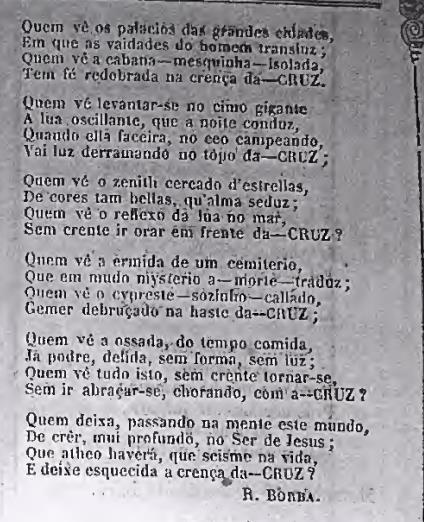 Quem vê os palacios das grandes cidades,
Em que as vaidades do homem transluz;
Quem vê a cabana—mesquinha—isolada,
Tem fé redobrada na crença da—CRUZ.
Quem vê levantar-se no cimo gigante
A lua oscillante, que a noite conduz,
Quando ella faceira, no ceo campeando,
Vai luz derramando no tôpo da—CRUZ;
Quem vê o zenith cercado d'estrellas,
De cores tam bellas, qu'alma seduz;
Quem vê o reflexo da lua no mar,
Sem crente ir orar em frente da—CRUZ?
Quem vê a ermida de um cemiterio,
Que em mudo mysterio a—morte—traduz;
Quem vê o cypreste—sozinho—callado,
Gemer debruçado na haste da—CRUZ;
Quem vê a ossada, do tempo comida,
Já podre, delida, sem forma, sem luz;
Quem vê tudo isto, sem crente tornar-se,
Sem ir abraçar-se, chorando, com a—CRUZ?
Quem deixa, passando na mente este mundo,
De crêr, mui profundo, no Ser de Jesus;
Que atheo haverá, que seisme na vida,
E deixe esquecida a crença da—CRUZ?
R. BORBA.